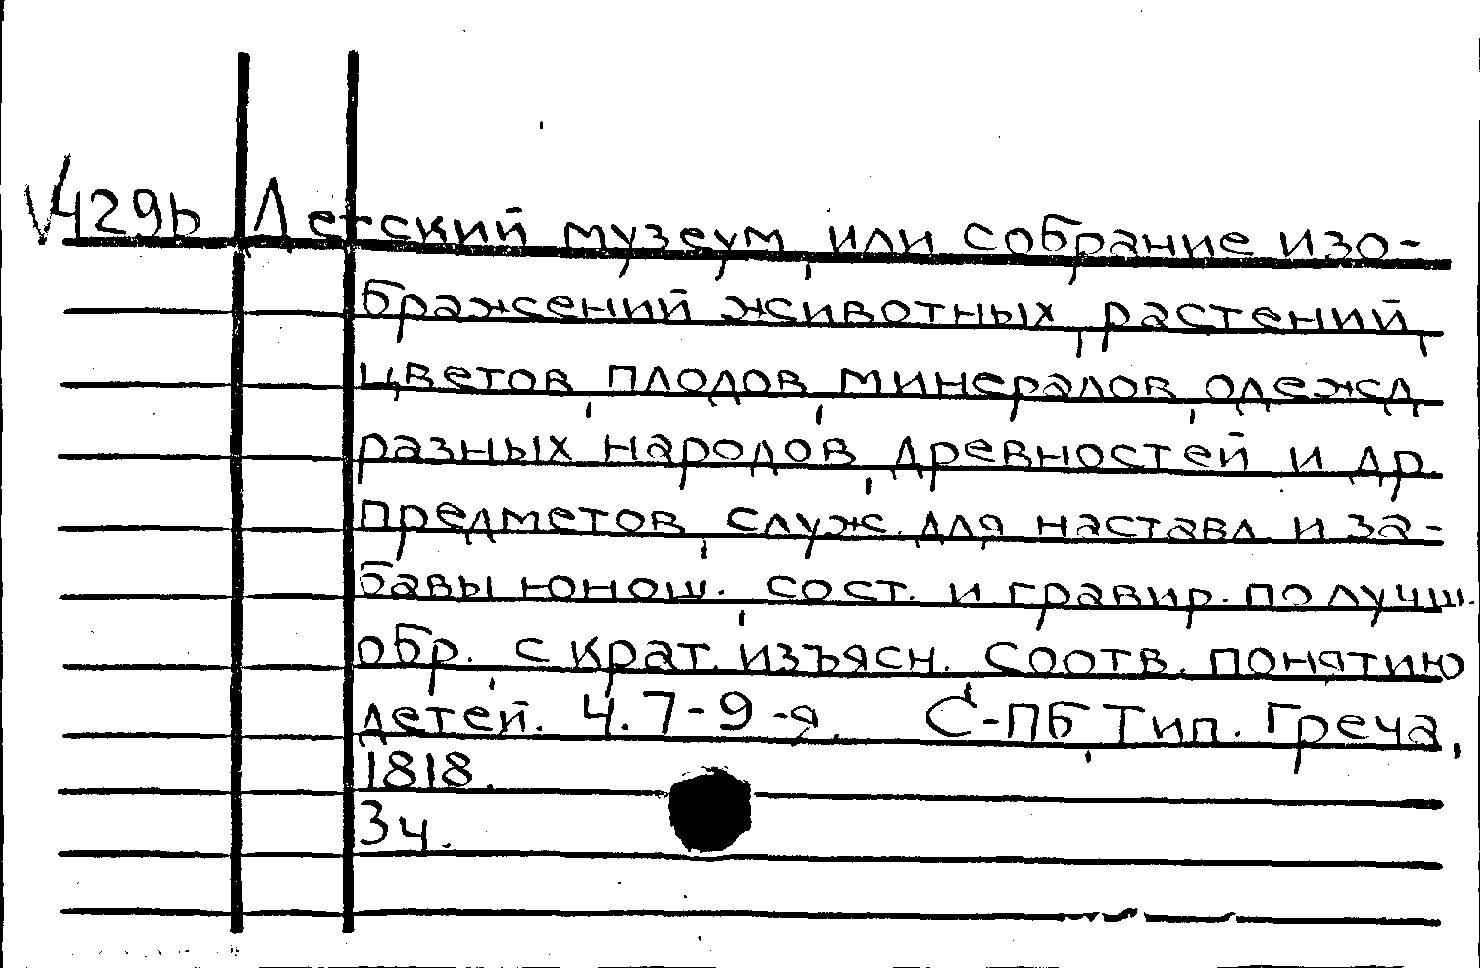 V429b Детский музеум, или собрание изо-
бражений животных, растений,
цветов, плодов, минералов, одежд
разных народов, древностей и др.
предметов, служ. для наставл. и за-
бавы юнош., сост. и гравир. по лучш.
обр., с крат. изъясн., соотв. понятию
детей. Ч. 7-9-я. С-ПБ, Тип. Греча,
1818.
3ч.